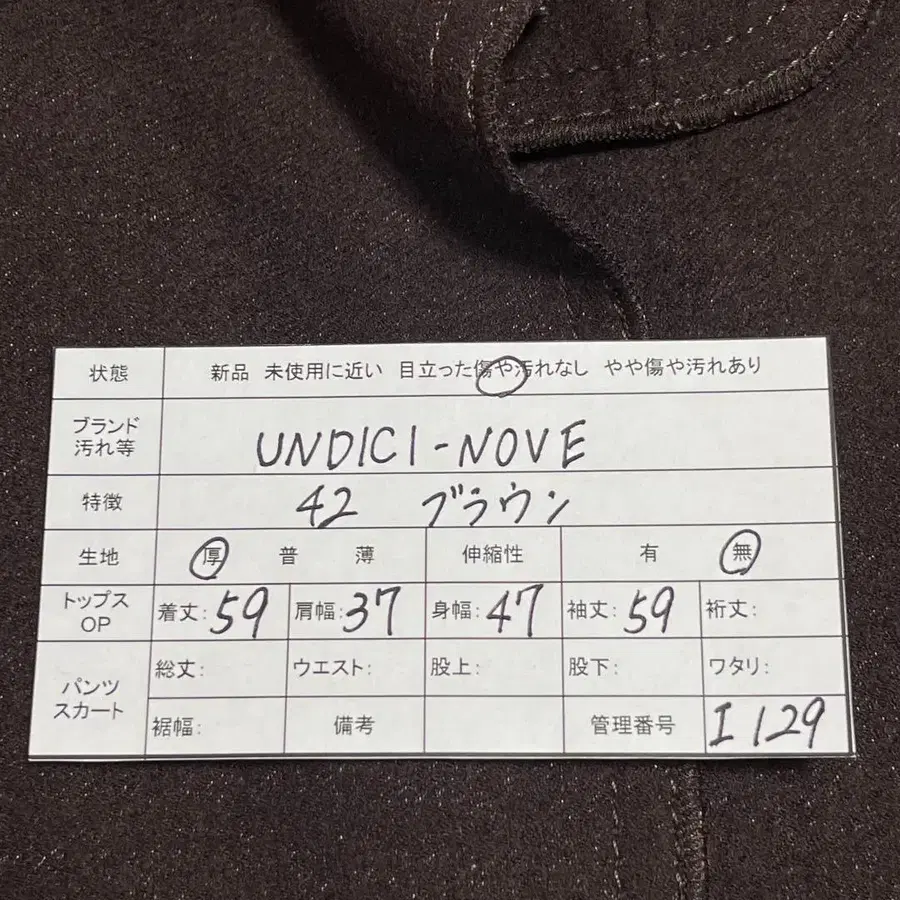 状態 新品 未使用に近い 目立った傷や汚れなし やや傷や汚れあり
ブランド
汚れ等 UNDICI-NOVE
特徴 42 ブラウン
生地 厚 普 薄 伸縮性 有 無
トップス
OP 着丈:59 肩幅:37 身幅:47 袖丈:59 裄丈:
パンツ
スカート 総丈: ウエスト: 股上: 股下: ワタリ:
裾幅: 備考 管理番号 I129